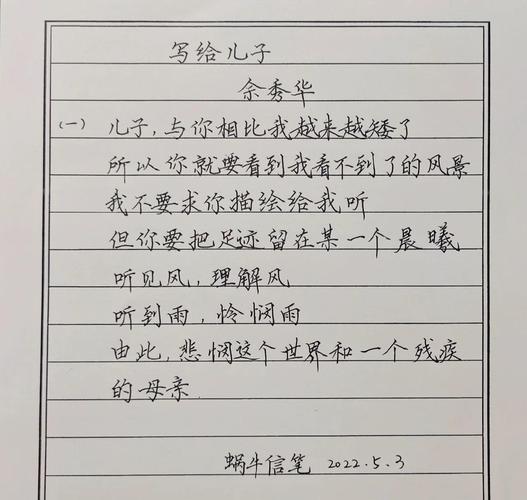 写给儿子
余秀华
(一) 儿子,与你相比我越来越矮了
所以你就要看到我看不到了的风景
我不要求你描绘给我听
但你要把足迹留在某一个晨曦
听见风,理解风
听到雨,怜悯雨
由此,悲悯这个世界和一个残疾
的母亲.
蜗牛信笔 2022.5.3